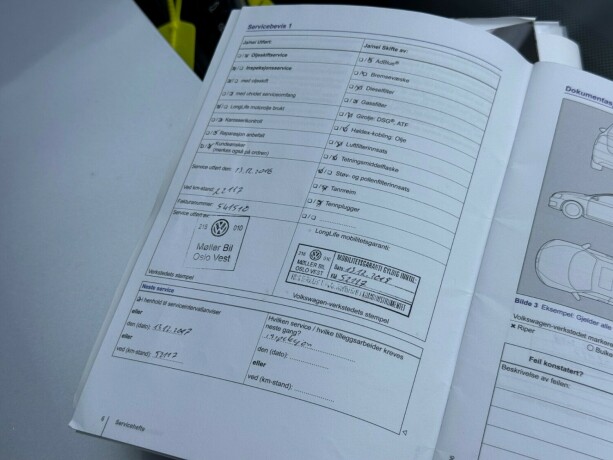 Servicebevis 1
Jamel Utført:
Oljeskiftservice
Inspeksjonsservice
med oljeskift
med utvidet serviceomfang
LongLife motorolje brukt
Karosserikontroll
Reparasjon anbefalt
Kundeønsker
(merkes også på ordren)
Service utført den: 13.12.2018
Ved km-stand:
Fakturanummer:
Service utført av:
215 010
Møller Bil
Oslo Vest
Verkstedets stempel
Jamel Skifte av:
AdBlue®
Bremsevæske
Dieselfilter
Gassfilter
Girolje: DSG®, ATF
Haldex-kobling: Olje
Luftfilterinnsats
Tetningsmiddelflaske
Støv- og pollenfilterinnsats
Tannreim
Tennplugger
LongLife mobilitetsgaranti:
MOBILITETSGARANTI GYLDIG INNTIL:
MØLLER BIL
OSLO VEST
Dato: 13.12.2018
Volkswagen-verkstedets stempel
Neste service
I henhold til serviceintervallanviser
eller
den (dato):
eller
ved (km-stand):
Hvilken service / hvilke tilleggsarbeider kreves
neste gang?
den (dato):
eller
ved (km-stand):
6 Servicehefte
Bilde 3 Eksempel: Gjelder
Volkswagen-verkstedet
Riper
Feil konstatert?
Beskrivelse av feilen: